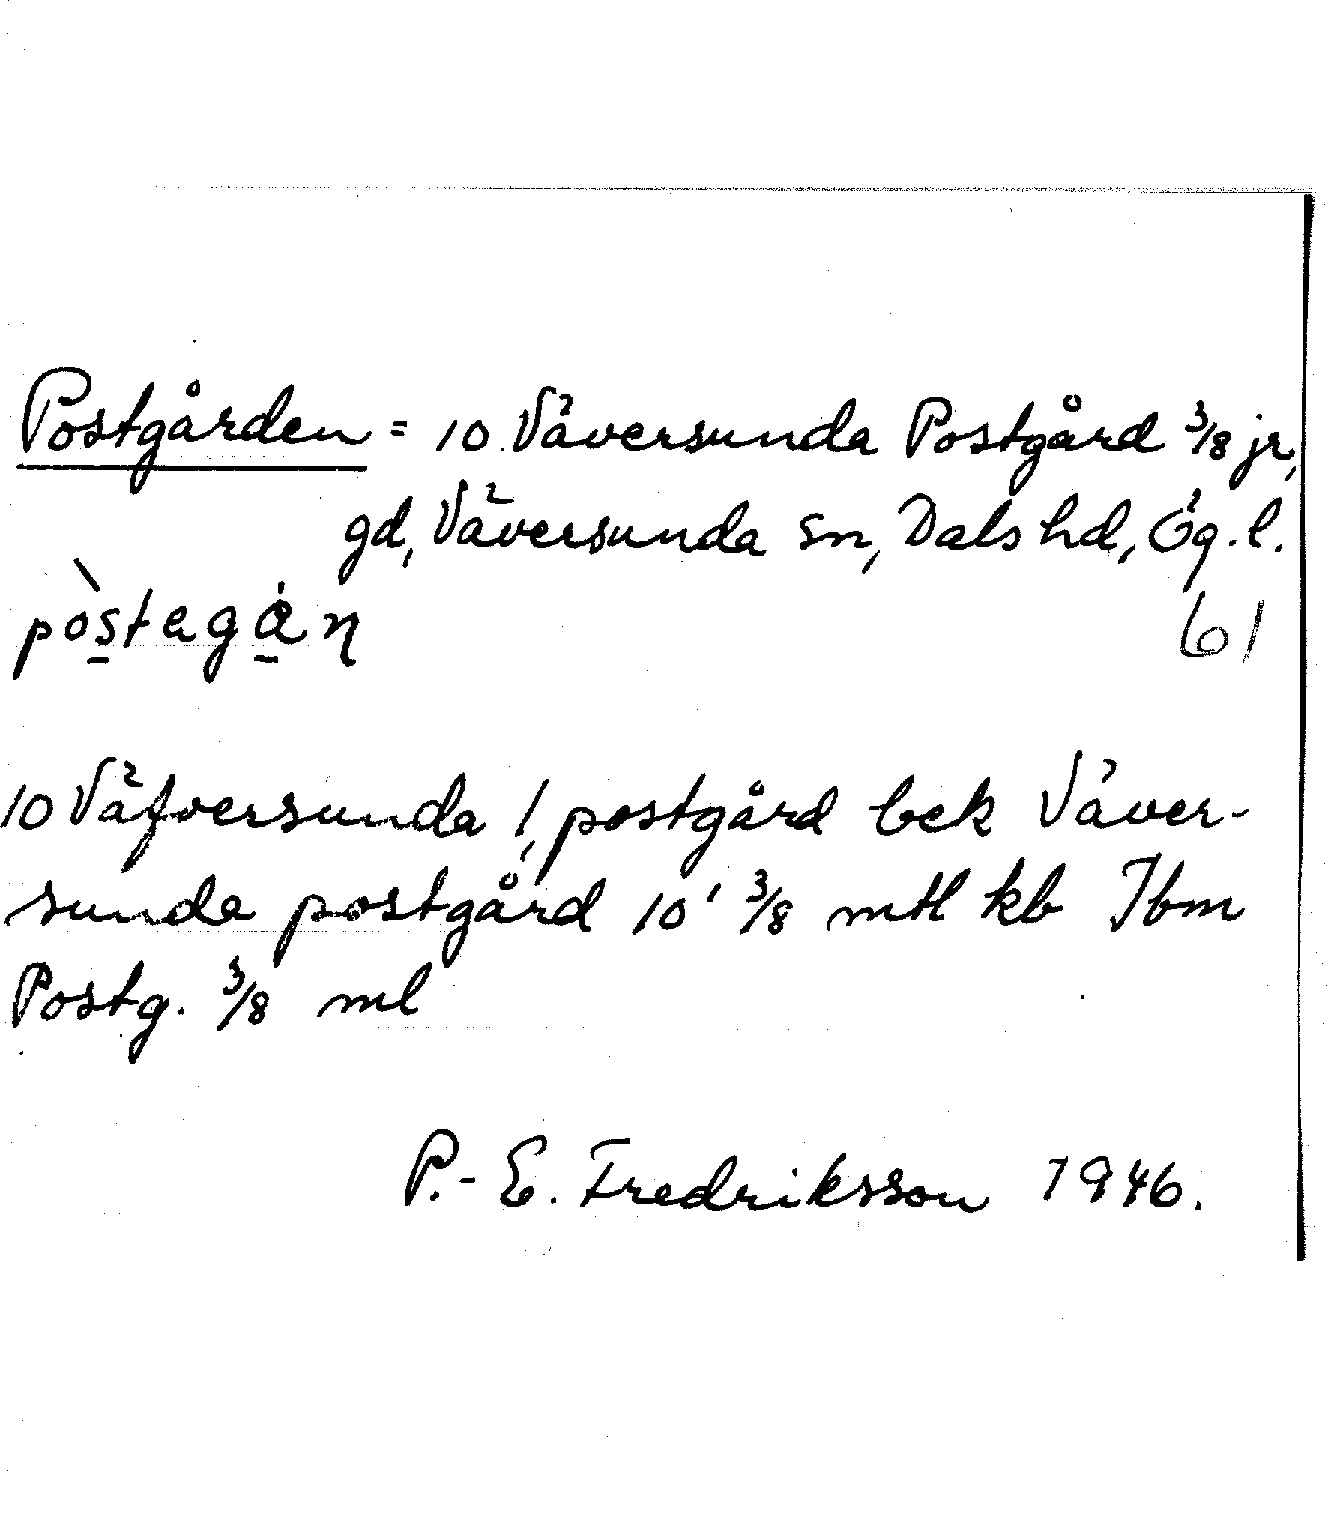 Postgården = 10 Väversunda Postgård 3/8 jr,
gd, Väversunda sn, Dals hd, Ög.l.
pòstagán 61
10 Väfversunda /, postgård bek Väver-
sunda postgård 10' 3/8 mtl kb Jbm
Postg. 3/8 ml
P.-E. Fredriksson 1946.